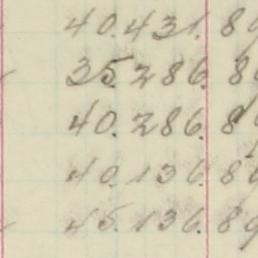 40.431.89
35.286.89
40.286.89
40.136.89
45.136.89